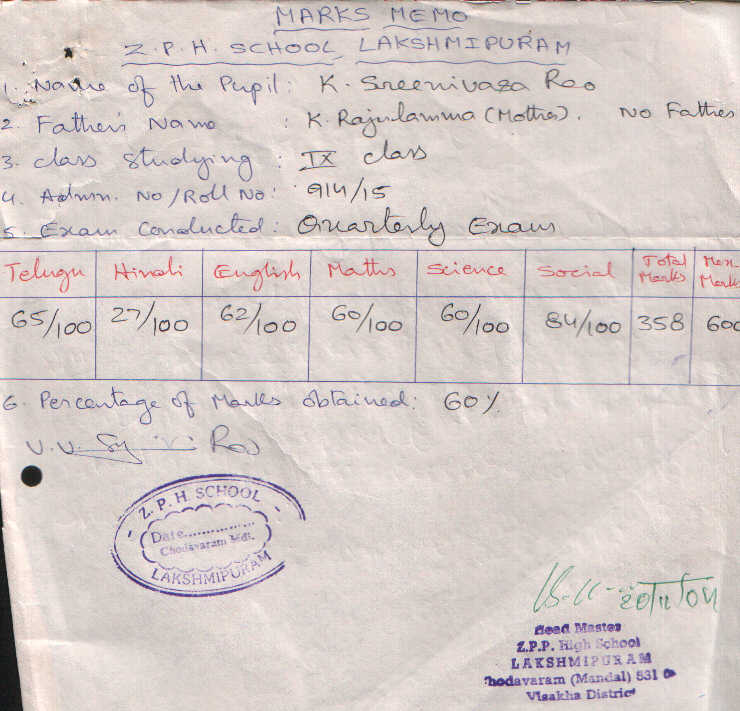 MARKS MEMO
Z.P.H. SCHOOL, LAKSHMIPURAM
1. Name of the Pupil: K. Sreenivasa Rao
2. Father's Name : K. Rajulamma (Mother). No Father
3. class studying : IX class
4. Admn. No/Roll No: 914/15
5. Exam Conducted: Quarterly Exam
Telugu Hindi English Maths Science Social Total Marks Max. Marks
65/100 27/100 62/100 60/100 60/100 84/100 358 600
6. Percentage of Marks obtained: 60%
V.V. Rao
Z.P.H SCHOOL
Date...............
Chodavaram Mdl.
LAKSHMIPURAM
20/11/04
Head Master
Z.P.P. High School
LAKSHMIPURAM
Chodavaram (Mandal) 531
Visakha District